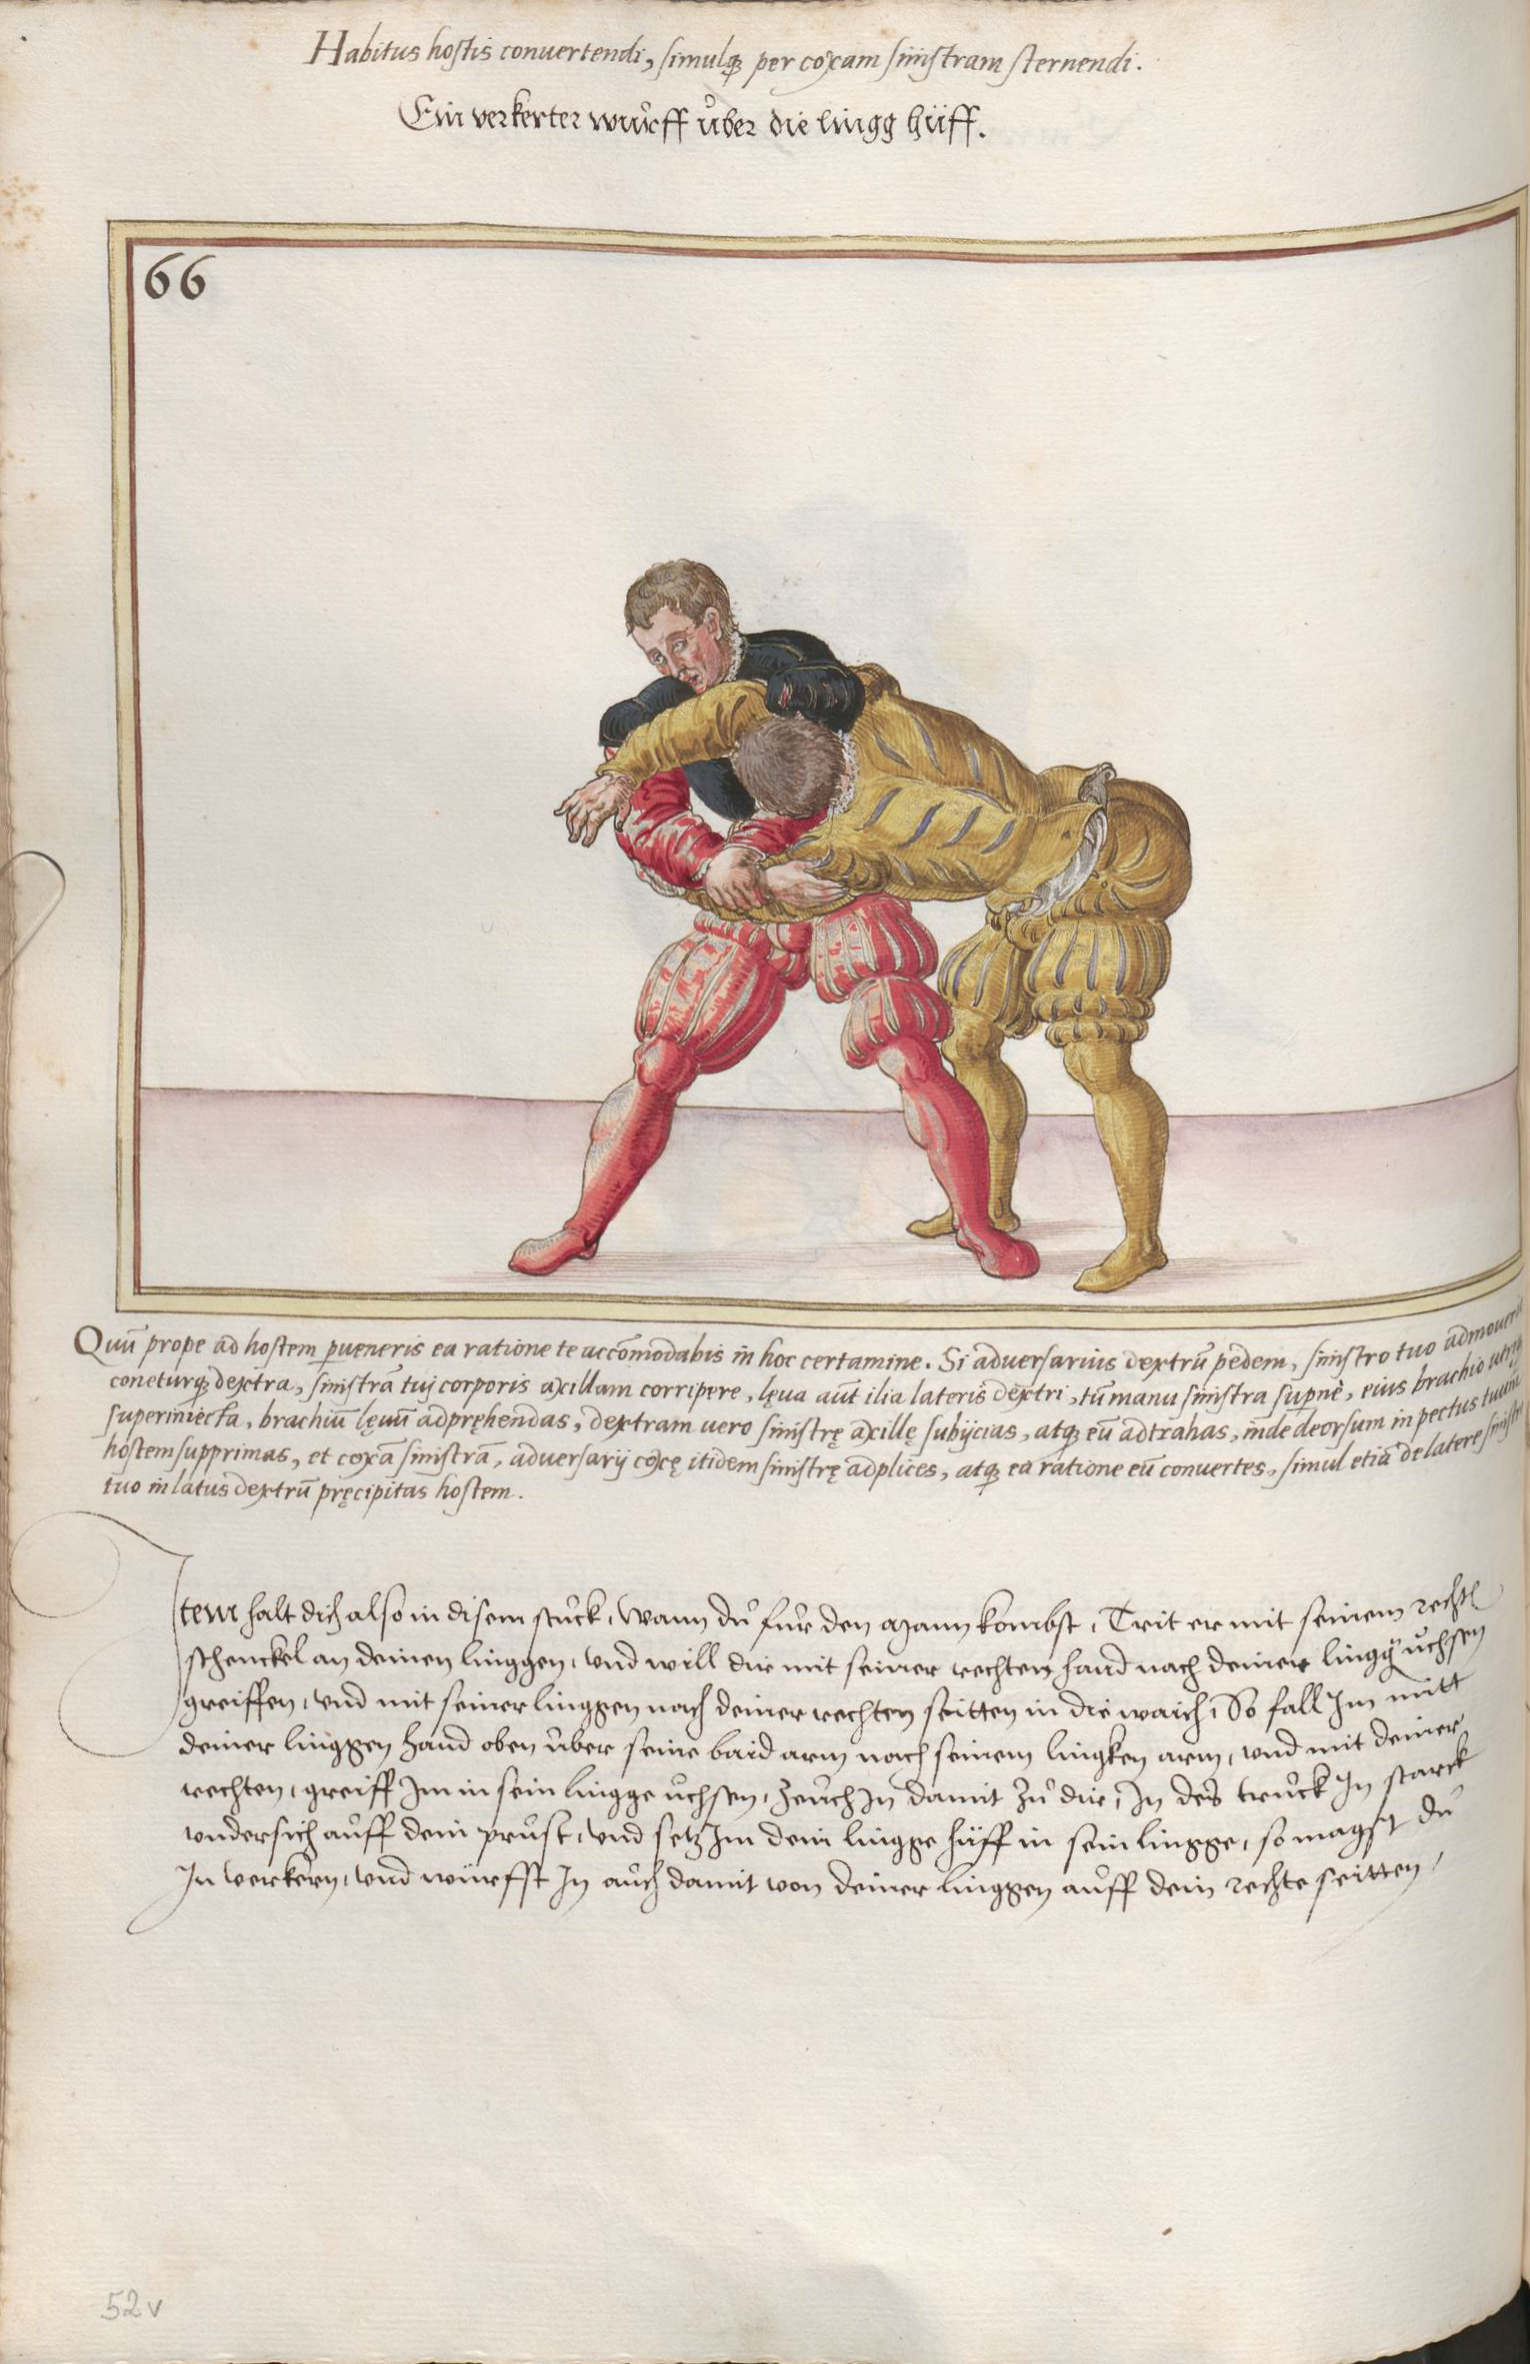 Habitus hostis conuertendi, simulq; per coxam sinistram sternendi.
Ein verkerter wurff über die lingg hüff.
66
Quū prope ad hostem pueneris ea ratione te accōmodabis in hoc certamine. Si aduersarius dextrū pedem, sinistro tuo admouerit
coneturq; dextra, sinistrā tuj corporis axillam corripere, lęua aūt ilia lateris dextri, tū manu sinistra supnè, eius brachio utroq;
superiniecta, brachiū lęuū adpręhendas, dextram uero sinistrę axillę subijcias, atq; eū adtrahas, inde deorsum in pectus tuum
hostem supprimas, et coxā sinistrā, aduersarij coxę itidem sinistrę adplices, atq; ea ratione eū conuertes, simul etiā de latere sinistro
tuo in latus dextrū pręcipitas hostem.
Item halt dich also in disem stuck, Wann du für den Mann kombst, Trit er mit seinem rechtn
schenckel an deinen linggen, und will dir mit seiner rechten hand nach deiner lingg üchsen
greiffen, und mit seiner linggen nach deiner rechten seitten in die waich, So fall Im mitt
deiner linggen hand oben über seine baid arm nach seinem lingken arm, und mit deiner
rechten, greiff Im in sein lingge üchsen, Zeuch In damit zu dir, In des truck In starck
undersich auff dein prust, und setz Im dein lingge hüff in sein lingge, so magst du
In verkern, und würfst In auch damit von deiner linggen auff dein rechte seitten,
52v